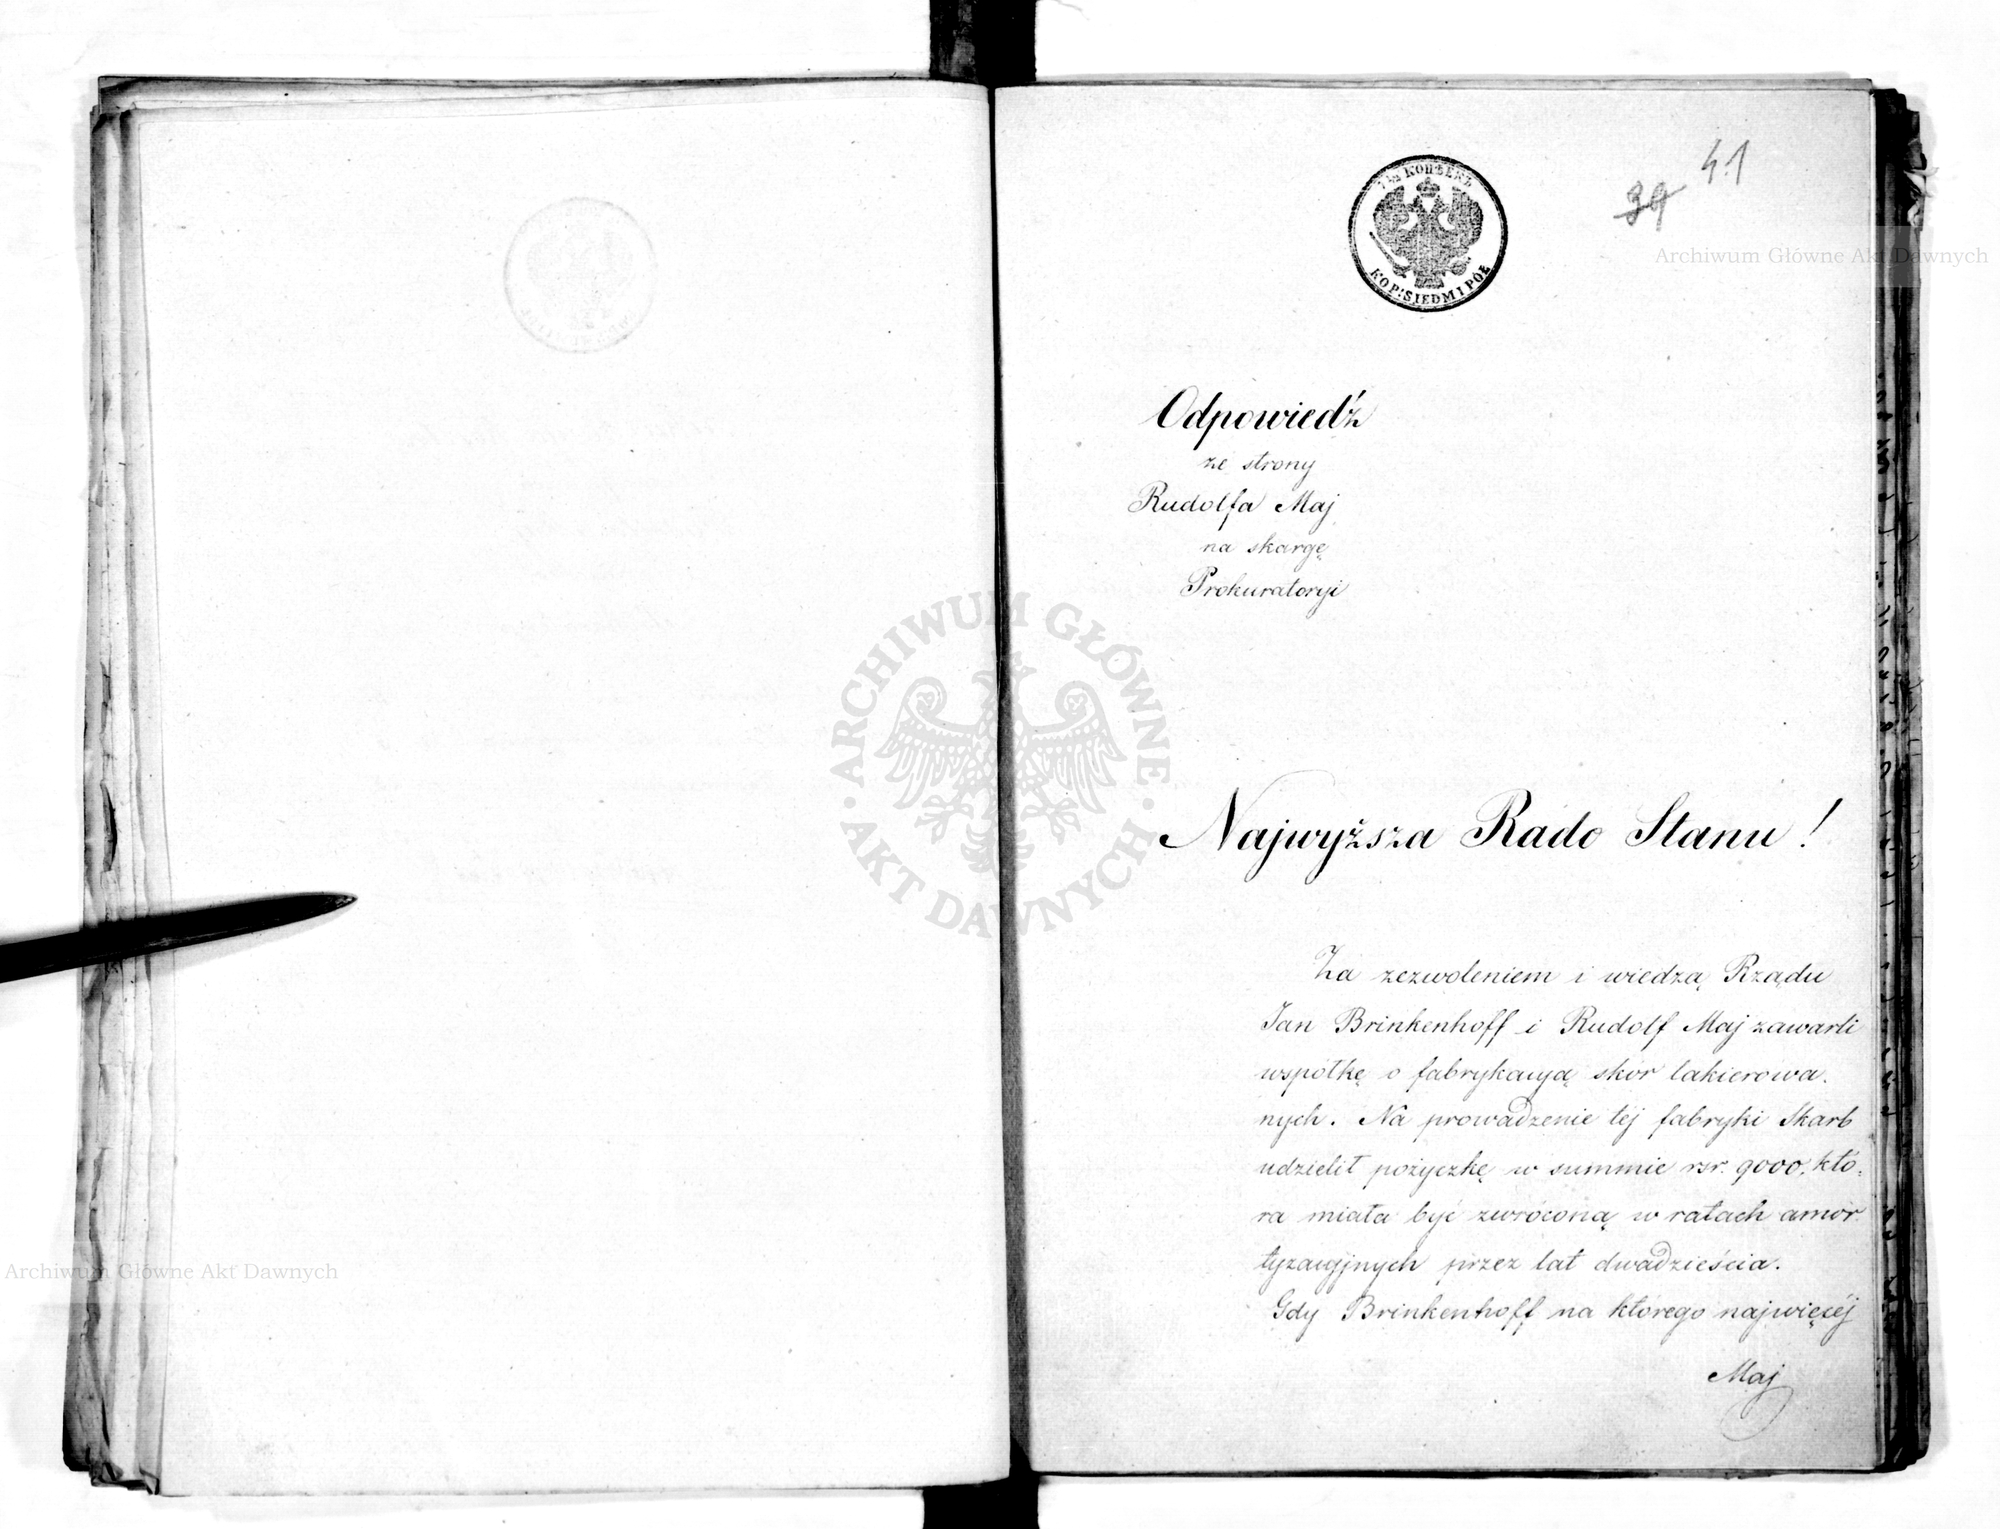 41
39
7½ КОПѢЕКЪ
KOP: SIEDM I PÓŁ
Archiwum Główne Akt Dawnych
Odpowiedź
ze strony
Rudolfa Maj
na skargę
Prokuratoryi
ARCHIWUM GŁÓWNE
AKT DAWNYCH
Najwyższa Rado Stanu!
Za zezwoleniem i wiedzą Rządu
Jan Brinkenhoff i Rudolf Maj zawarli
wspólkę o fabrykacyą skór lakierowa.
nych. Na prowadzenie téj fabryki Skarb
udzielił pożyczkę w summie rsr. 9000. któ-
ra miała być zwróconą w ratach amor
tyzacyjnych przez lat dwadzieścia.
Gdy Brinkenhoff na którego najwięcéj
Maj
Archiwum Główne Akt Dawnych